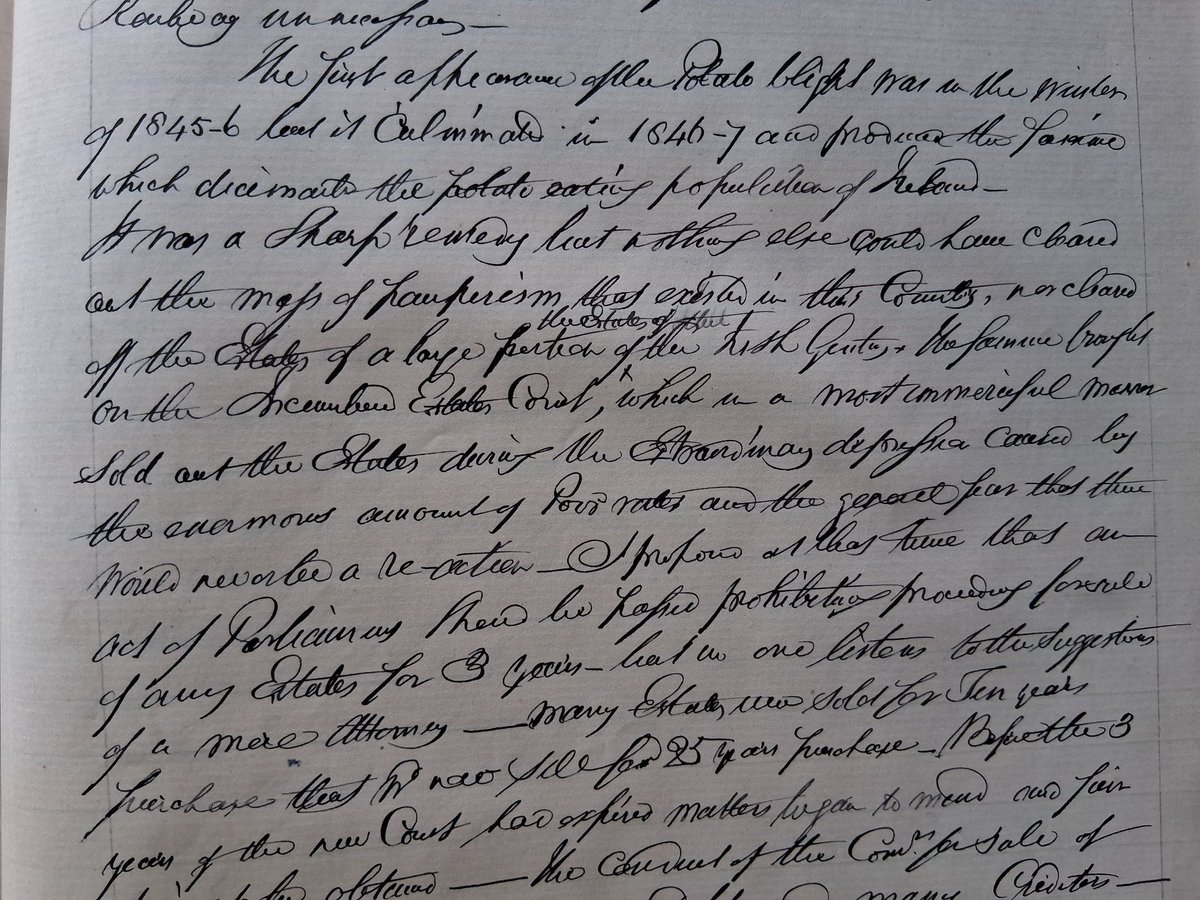 Railway unnecessary —
The first appearance of the Potato blight was in the winter
of 1845-6 but it Culminated in 1846-7 and produced the famine
which decimated the potato eating population of Ireland —
It was a Sharp remedy but nothing else could have cleared
out the mass of pauperism that existed in this Country, nor cleared
the Estates of
off the Estates of a large portion of the Irish Gentry. The famine brought
on the Incumbered Estates Court, which in a most unmerciful manner
Sold out the Estates during the Extraordinary depression caused by
the enormous amount of Poor rates and the general fear that there
would never be a re-action — I proposed at that time that an
act of Parliament should be passed prohibiting proceedings for sale
of any Estates for 3 years — but no one listens to the suggestions
of a mere Attorney — many Estates were sold for Ten years
purchase that wd now sell for 25 years purchase — Before the 3
years of the new Court had expired matters began to mend and fair
obtained — The conduct of the Comrs for Sale of
many Creditors —